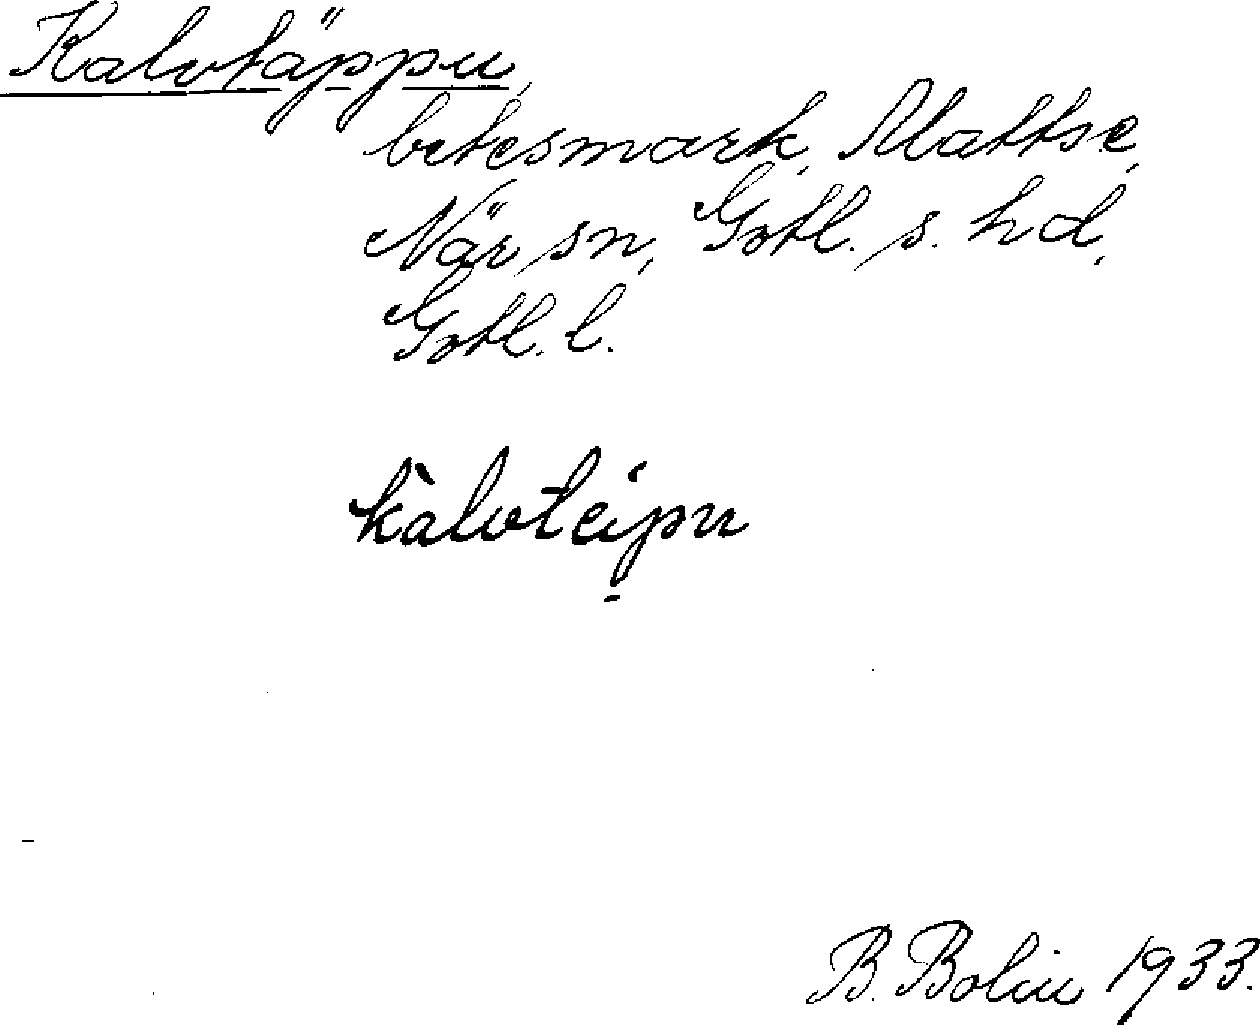 Kalvtäppu,
betesmark, Mattse,
När sn, Gotl. s. hd,
Gotl. l.
kàlvteipu
B. Bolin 1933.